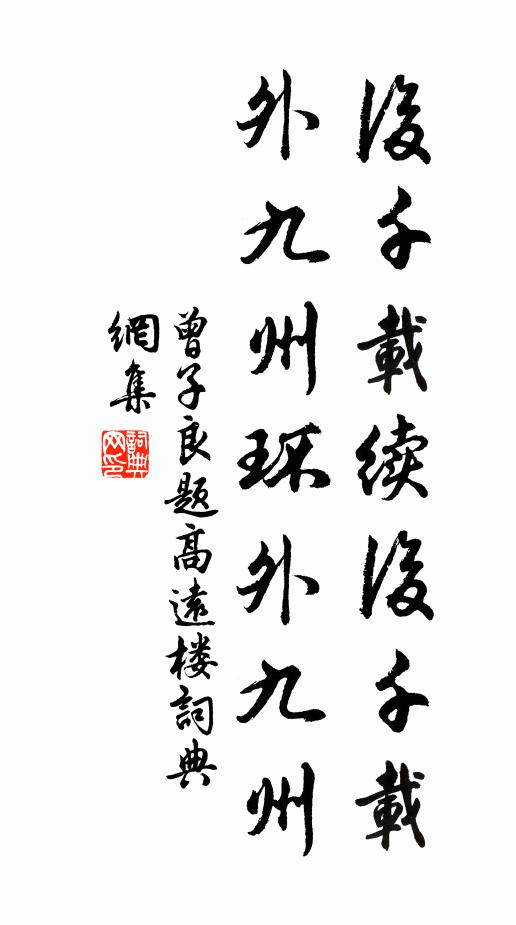 後千載續後千載
外九州环外九州
曾子良题高遠楼詞典
網集
詞典
网印